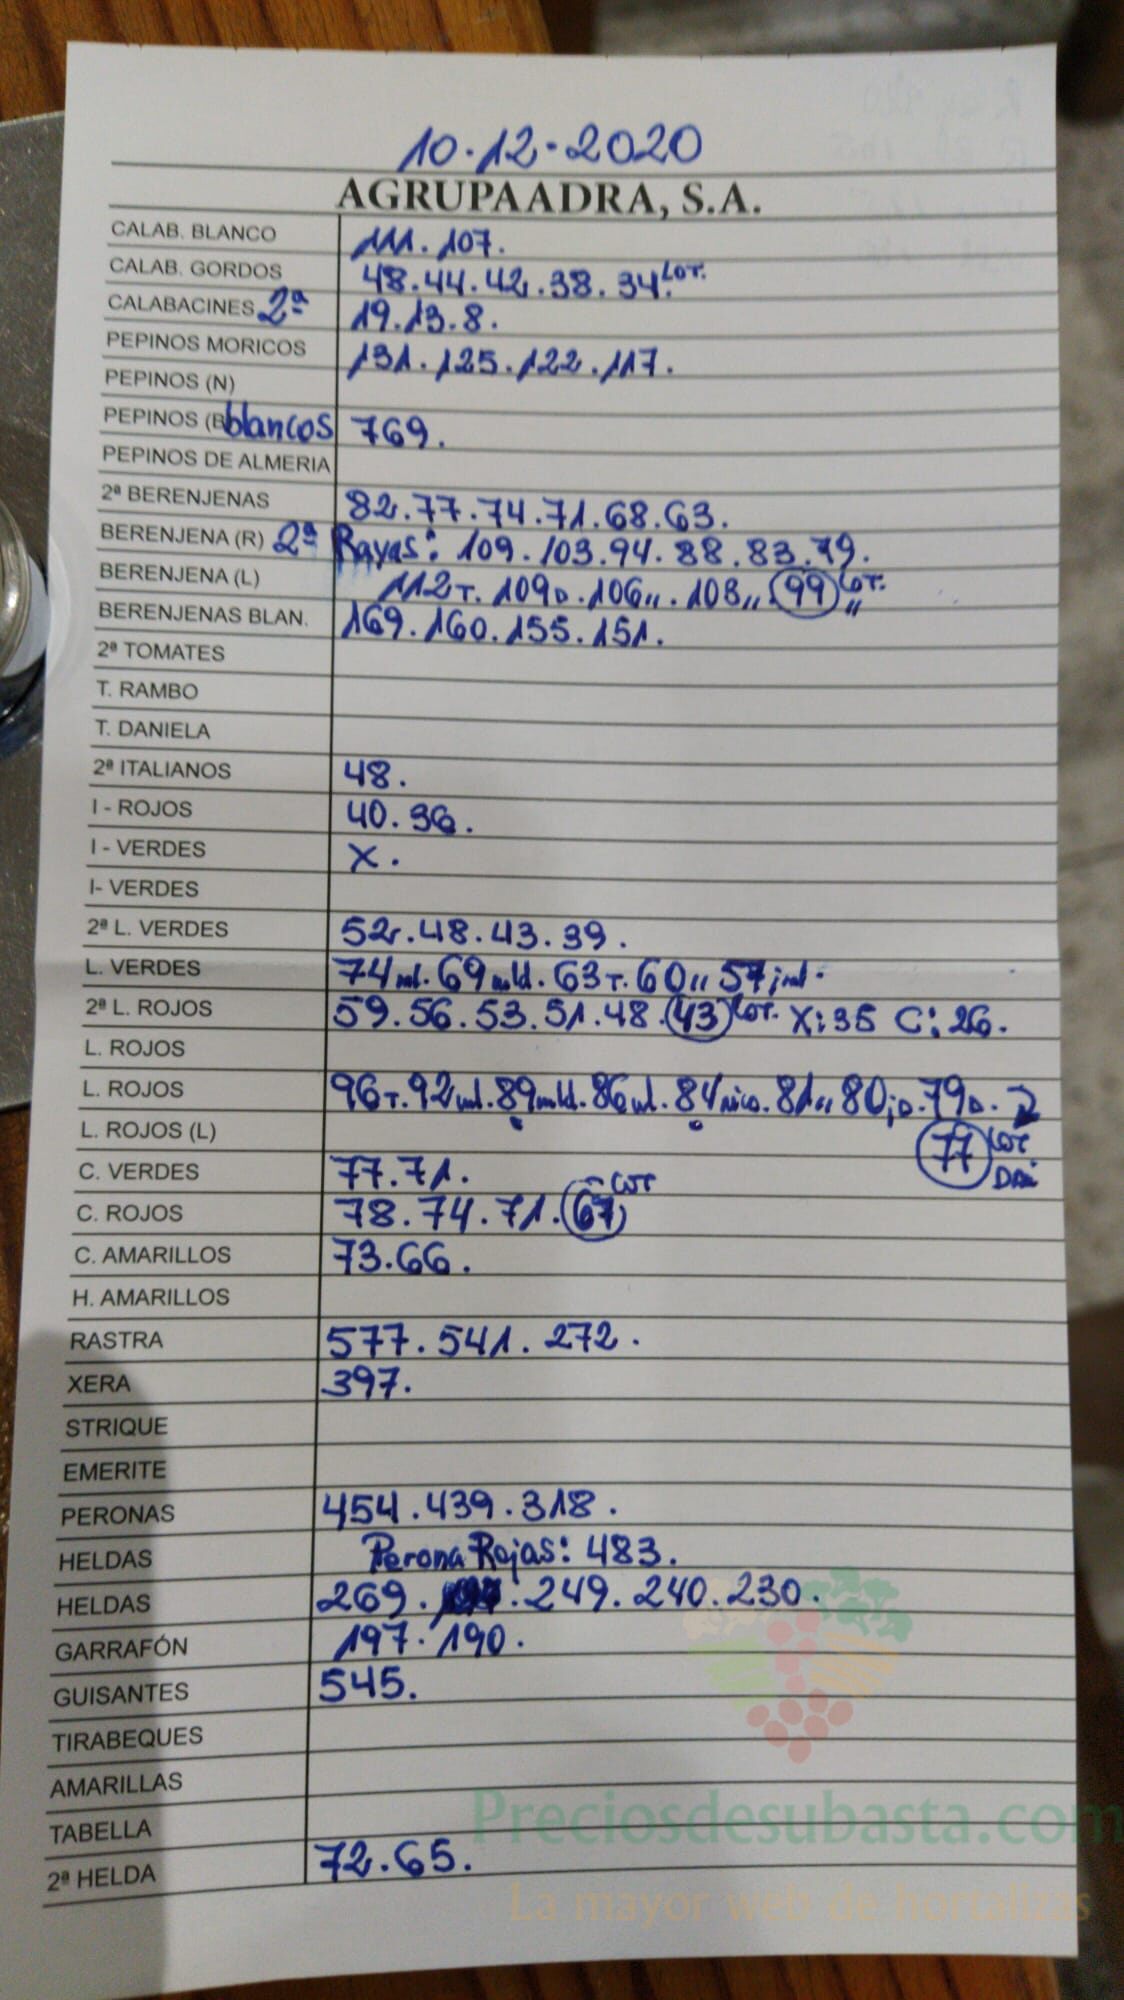 10.12.2020
AGRUPAADRA, S.A.
CALAB. BLANCO 111. 107.
CALAB. GORDOS 48.44.42.38.34. LOT.
CALABACINES 2ª 19.13.8.
PEPINOS MORICOS 131. 125. 122. 117.
PEPINOS (N)
PEPINOS (B blancos 769.
PEPINOS DE ALMERIA
2ª BERENJENAS 82.77.74.71.68.63.
BERENJENA (R) 2ª Rayas: 109.103.94.88.83.79.
BERENJENA (L) 112T. 109D. 106". 103". 99 LOT. "
BERENJENAS BLAN. 169.160.155.151.
2ª TOMATES
T. RAMBO
T. DANIELA
2ª ITALIANOS 48.
I - ROJOS 40. 36.
I - VERDES X.
I- VERDES
2ª L. VERDES 52.48.43.39.
L. VERDES 74 69 63T. 60" 57
2ª L. ROJOS 59.56.53.51.48.43 LOT. X:35 C:26.
L. ROJOS
L. ROJOS 96T. 92 89 86 84 81" 80 79D.
L. ROJOS (L) 77 LOT
C. VERDES 77.71.
C. ROJOS 78.74.71.67 LOT
C. AMARILLOS 73.66.
H. AMARILLOS
RASTRA 577. 541. 272.
XERA 397.
STRIQUE
EMERITE
PERONAS 454.439.318.
HELDAS Perona Rojas: 483.
HELDAS 269. 249.240.230.
GARRAFÓN 197. 190.
GUISANTES 545.
TIRABEQUES
AMARILLAS
TABELLA
2ª HELDA 72.65.
Preciosdesubasta.com
La mayor web de hortalizas